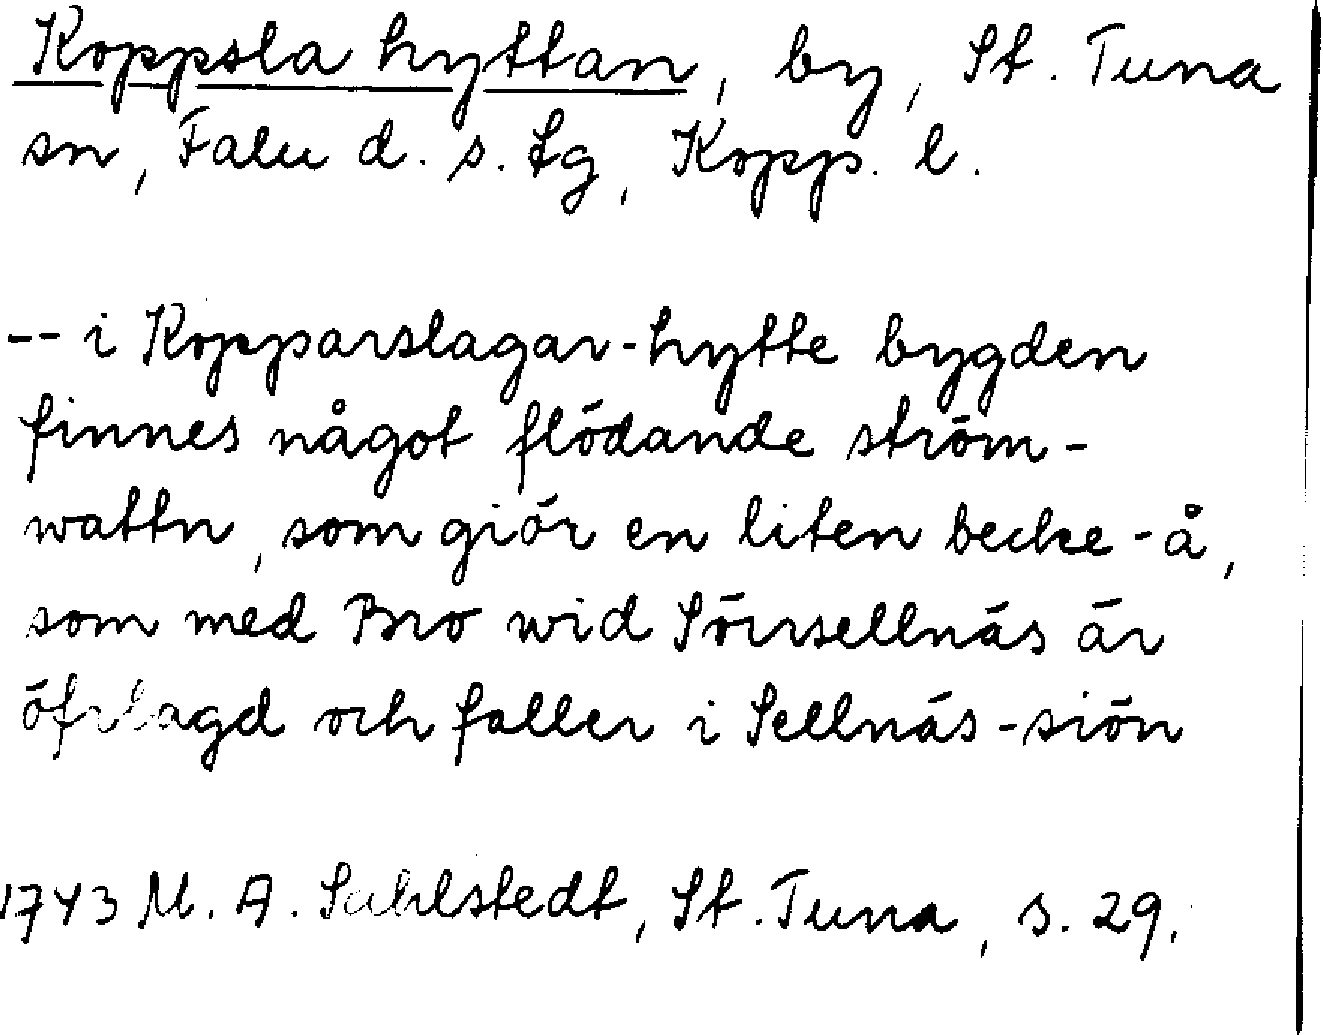 Koppsla hyttan, by, St. Tuna
sn, Falu d. s. tg, Kopp. l.
-- i Kopparslagar-hytte bygden
finnes något flödande ström-
wattn, som giör en liten becke-å,
som med Bro wid Sörrsellnäs är
öfrlagd och faller i Sellnäs-siön
1743 M. A. Sahlstedt, St. Tuna, s. 29.